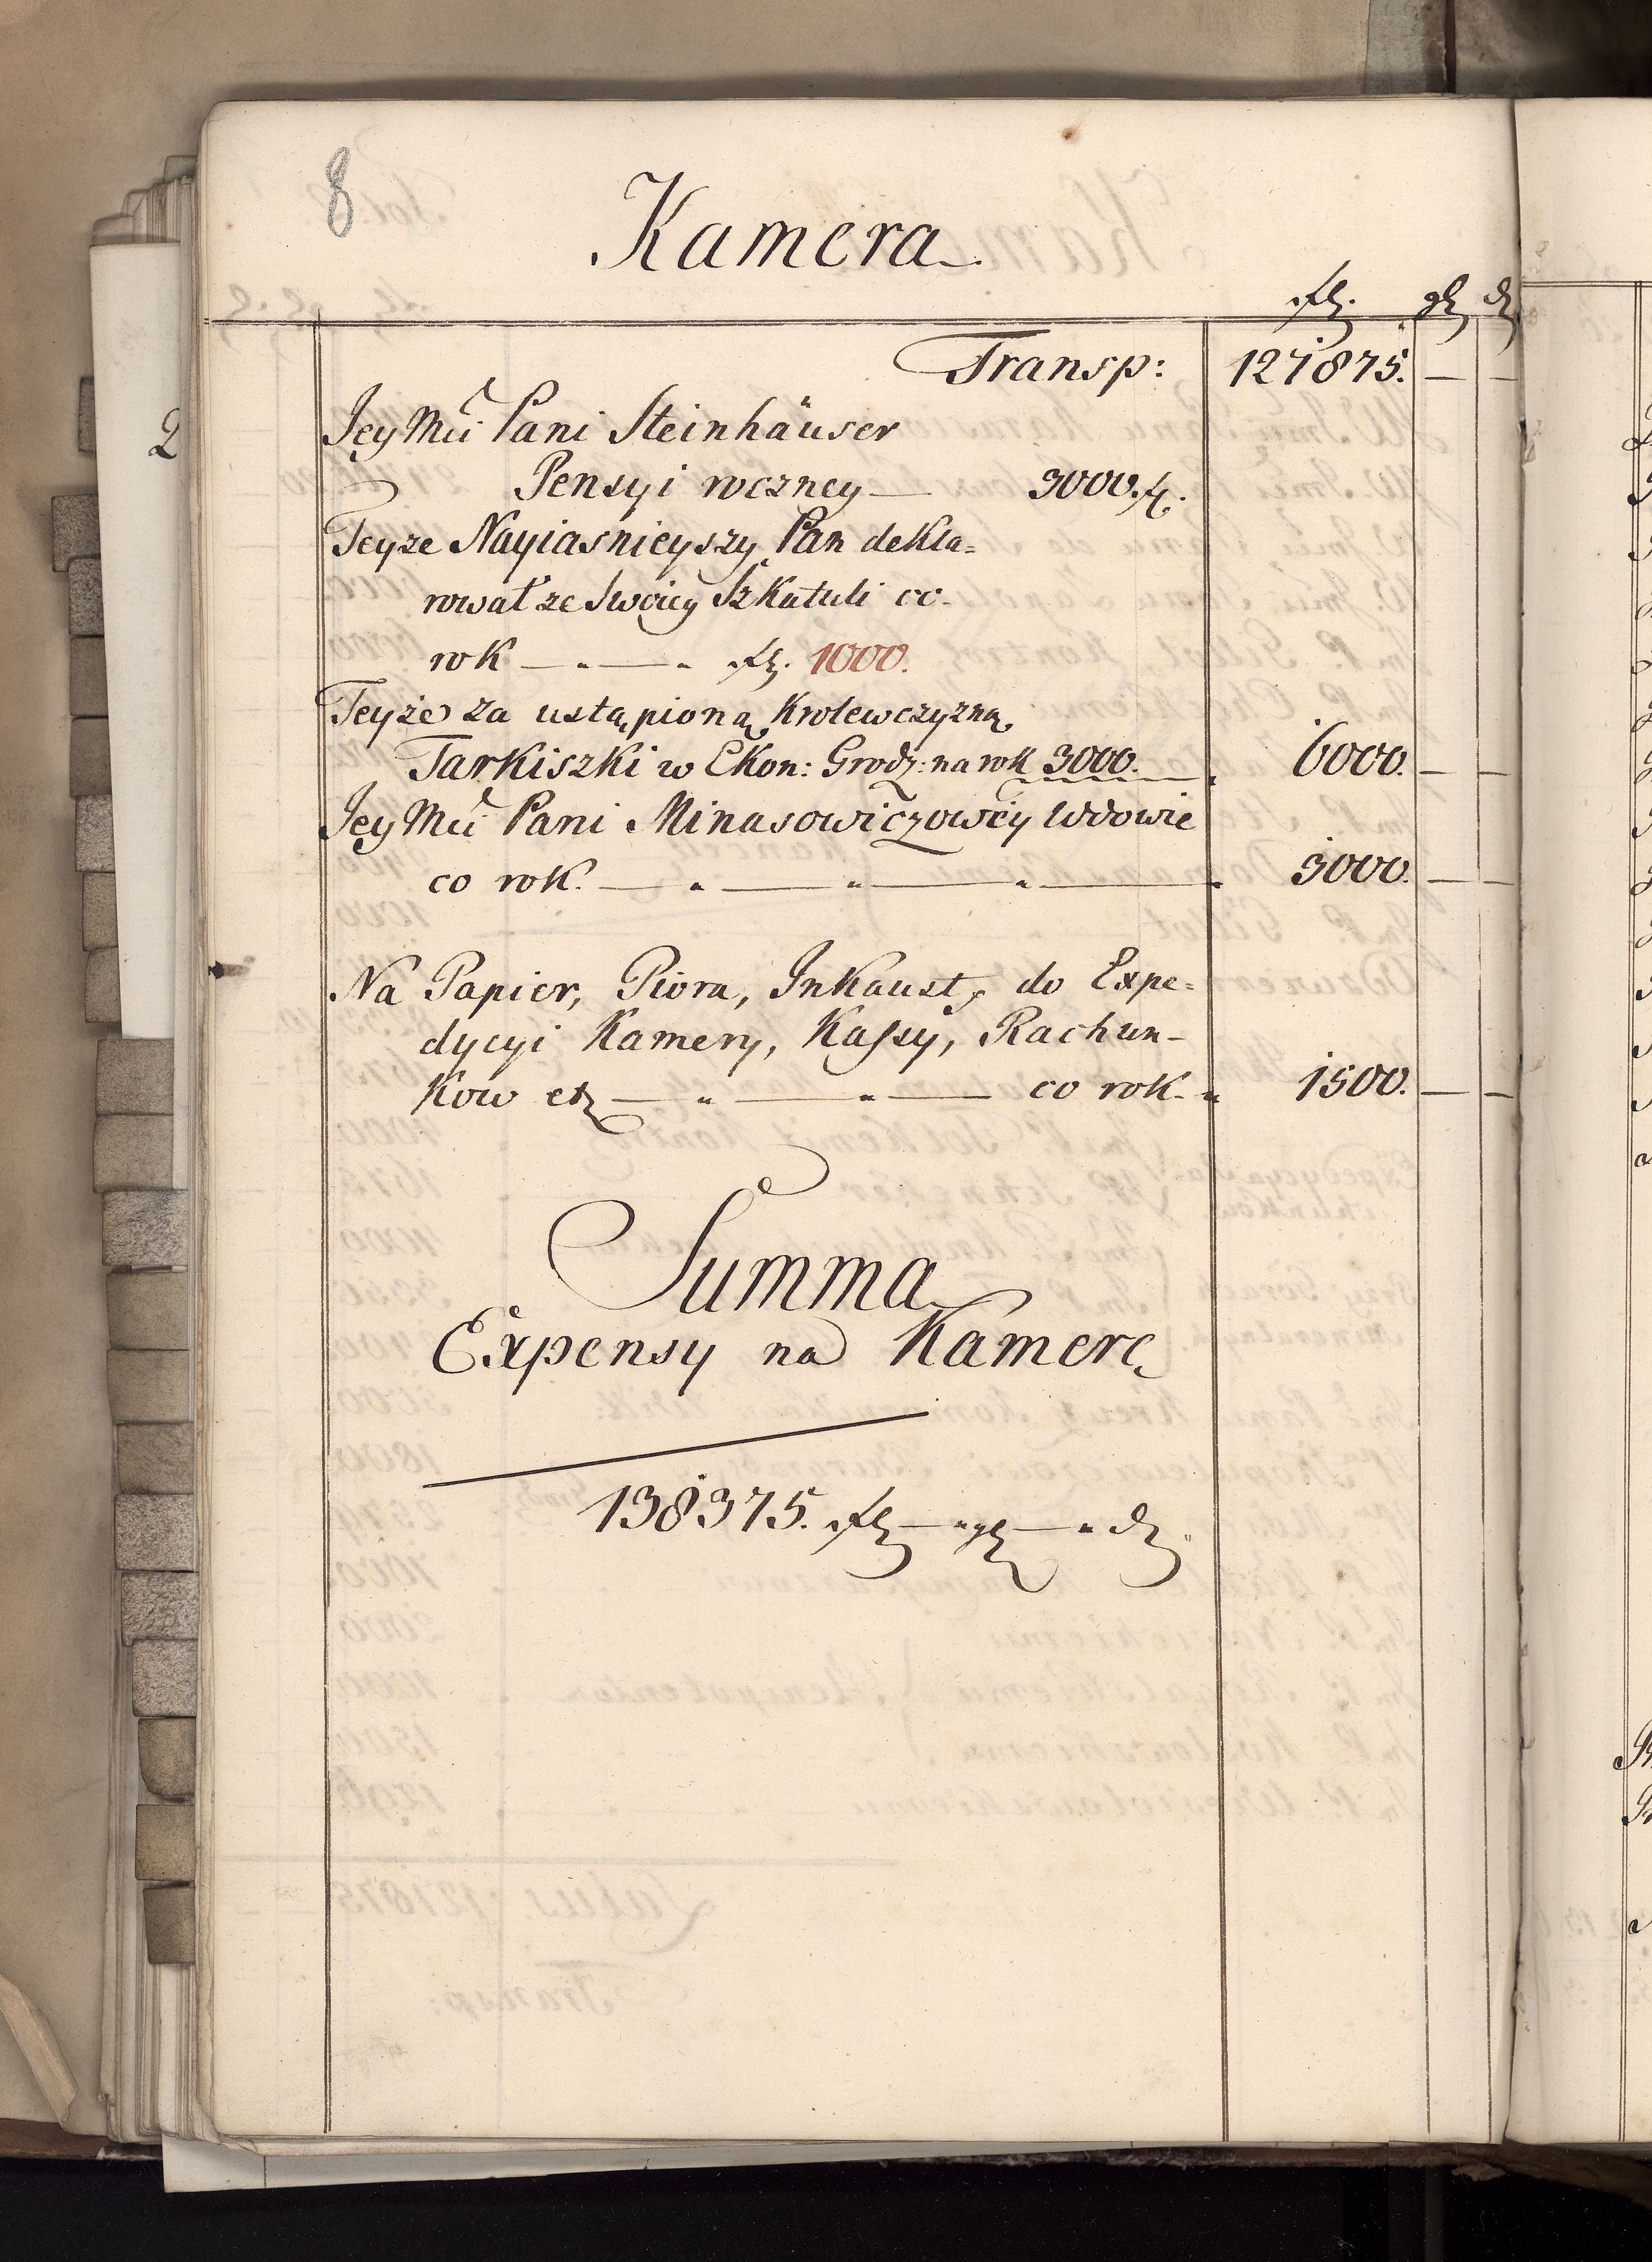 8
Kamera
fl. gl d
Transp: 127875. — —
Jey Mći Pani Steinhäuser
Pensyi roczney — 3000. fl.
Teyze Nayiasnieyszy Pan dekla=
rował ze Swoiey Szkatuli co-
rok — " — " fl. 1000.
Teyże za ustąpioną Krolewczyzną
Tarkiszki w Ekon: Grodz: na rok 3000. — " 6000. — —
Jey Mći Pani Minasowiczowey Wdowie
co rok. — " — " — " — " 3000. — —
Na Papier, Piora, Inkaust, do Expe=
dycyi Kamery, Kassy, Rachun-
kow etc — " — " — co rok - " 1500. — —
Summa
Expensy na Kamerę
138375. fl — " gl — " d "
2